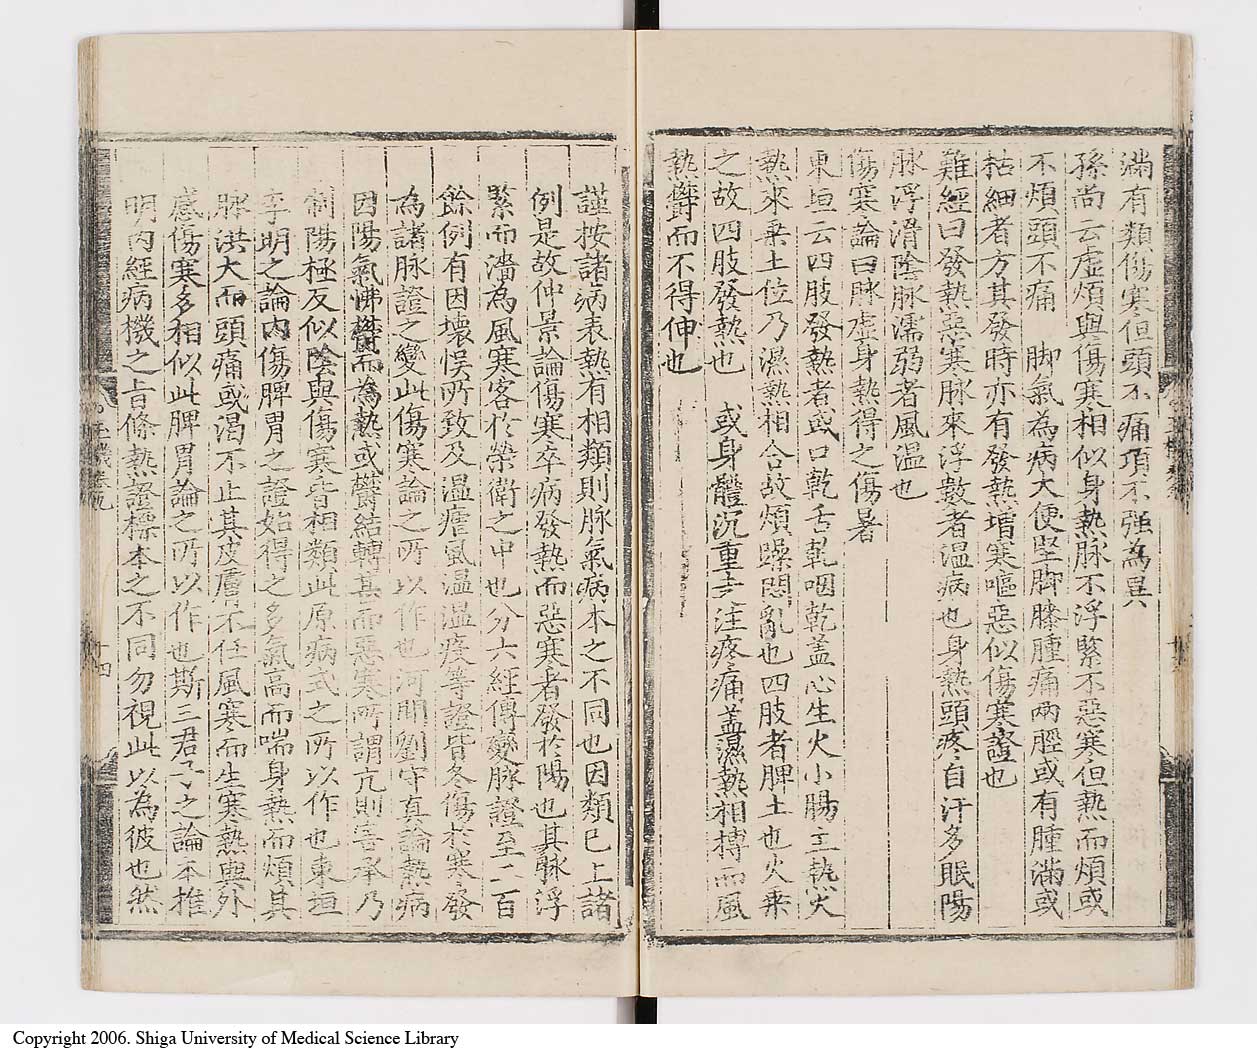 滿有類傷寒但頭不痛項不强為異
孫尚云虛煩與傷寒相似身熱脉不浮緊不惡寒但熱而煩或
不煩頭不痛　脚氣為病大便堅脚膝腫痛兩脛或有腫滿或
枯細者方其發時亦有發熱增寒嘔惡似傷寒證也
難經曰發熱惡寒脉來浮數者溫病也身熱頭疼自汗多眠陽
脉浮滑陰脉濡弱者風溫也
傷寒論曰脉虛身熱得之傷暑
東垣云四肢發熱者或口乾舌乾咽乾蓋心生火小腸主熱火
熱來乘土位乃濕熱相合故煩躁悶亂也四肢者脾土也火乘
之故四肢發熱也　或身體沉重走注疼痛蓋濕熱相搏而風
熱欝而不得伸也
謹按諸病表熱有相類則脉氣病本之不同也因類已上諸
例是故仲景論傷寒卒病發熱而惡寒者發於陽也其脉浮
緊而濇為風寒客於榮衛之中也分六經傳變脉證至二百
餘例有因壞悮所致及溫瘧風溫溫疫等證皆冬傷於寒發
為諸脉證之變此傷寒論之所以作也河間劉守真論熱病
因陽氣怫欝而為熱或欝結轉甚而惡寒所謂亢則害承乃
制陽極反似陰與傷寒皆相類此原病式之所以作也東垣
李明之論內傷脾胃之證始得之多氣高而喘身熱而煩其
脉洪大而頭痛或渴不止其皮膚不任風寒而生寒熱與外
感傷寒多相似此脾胃論之所以作也斯三君子之論本推
明內經病機之旨條熱證標本之不同勿視此以為彼也然
十四
Copyright 2006. Shiga University of Medical Science Library